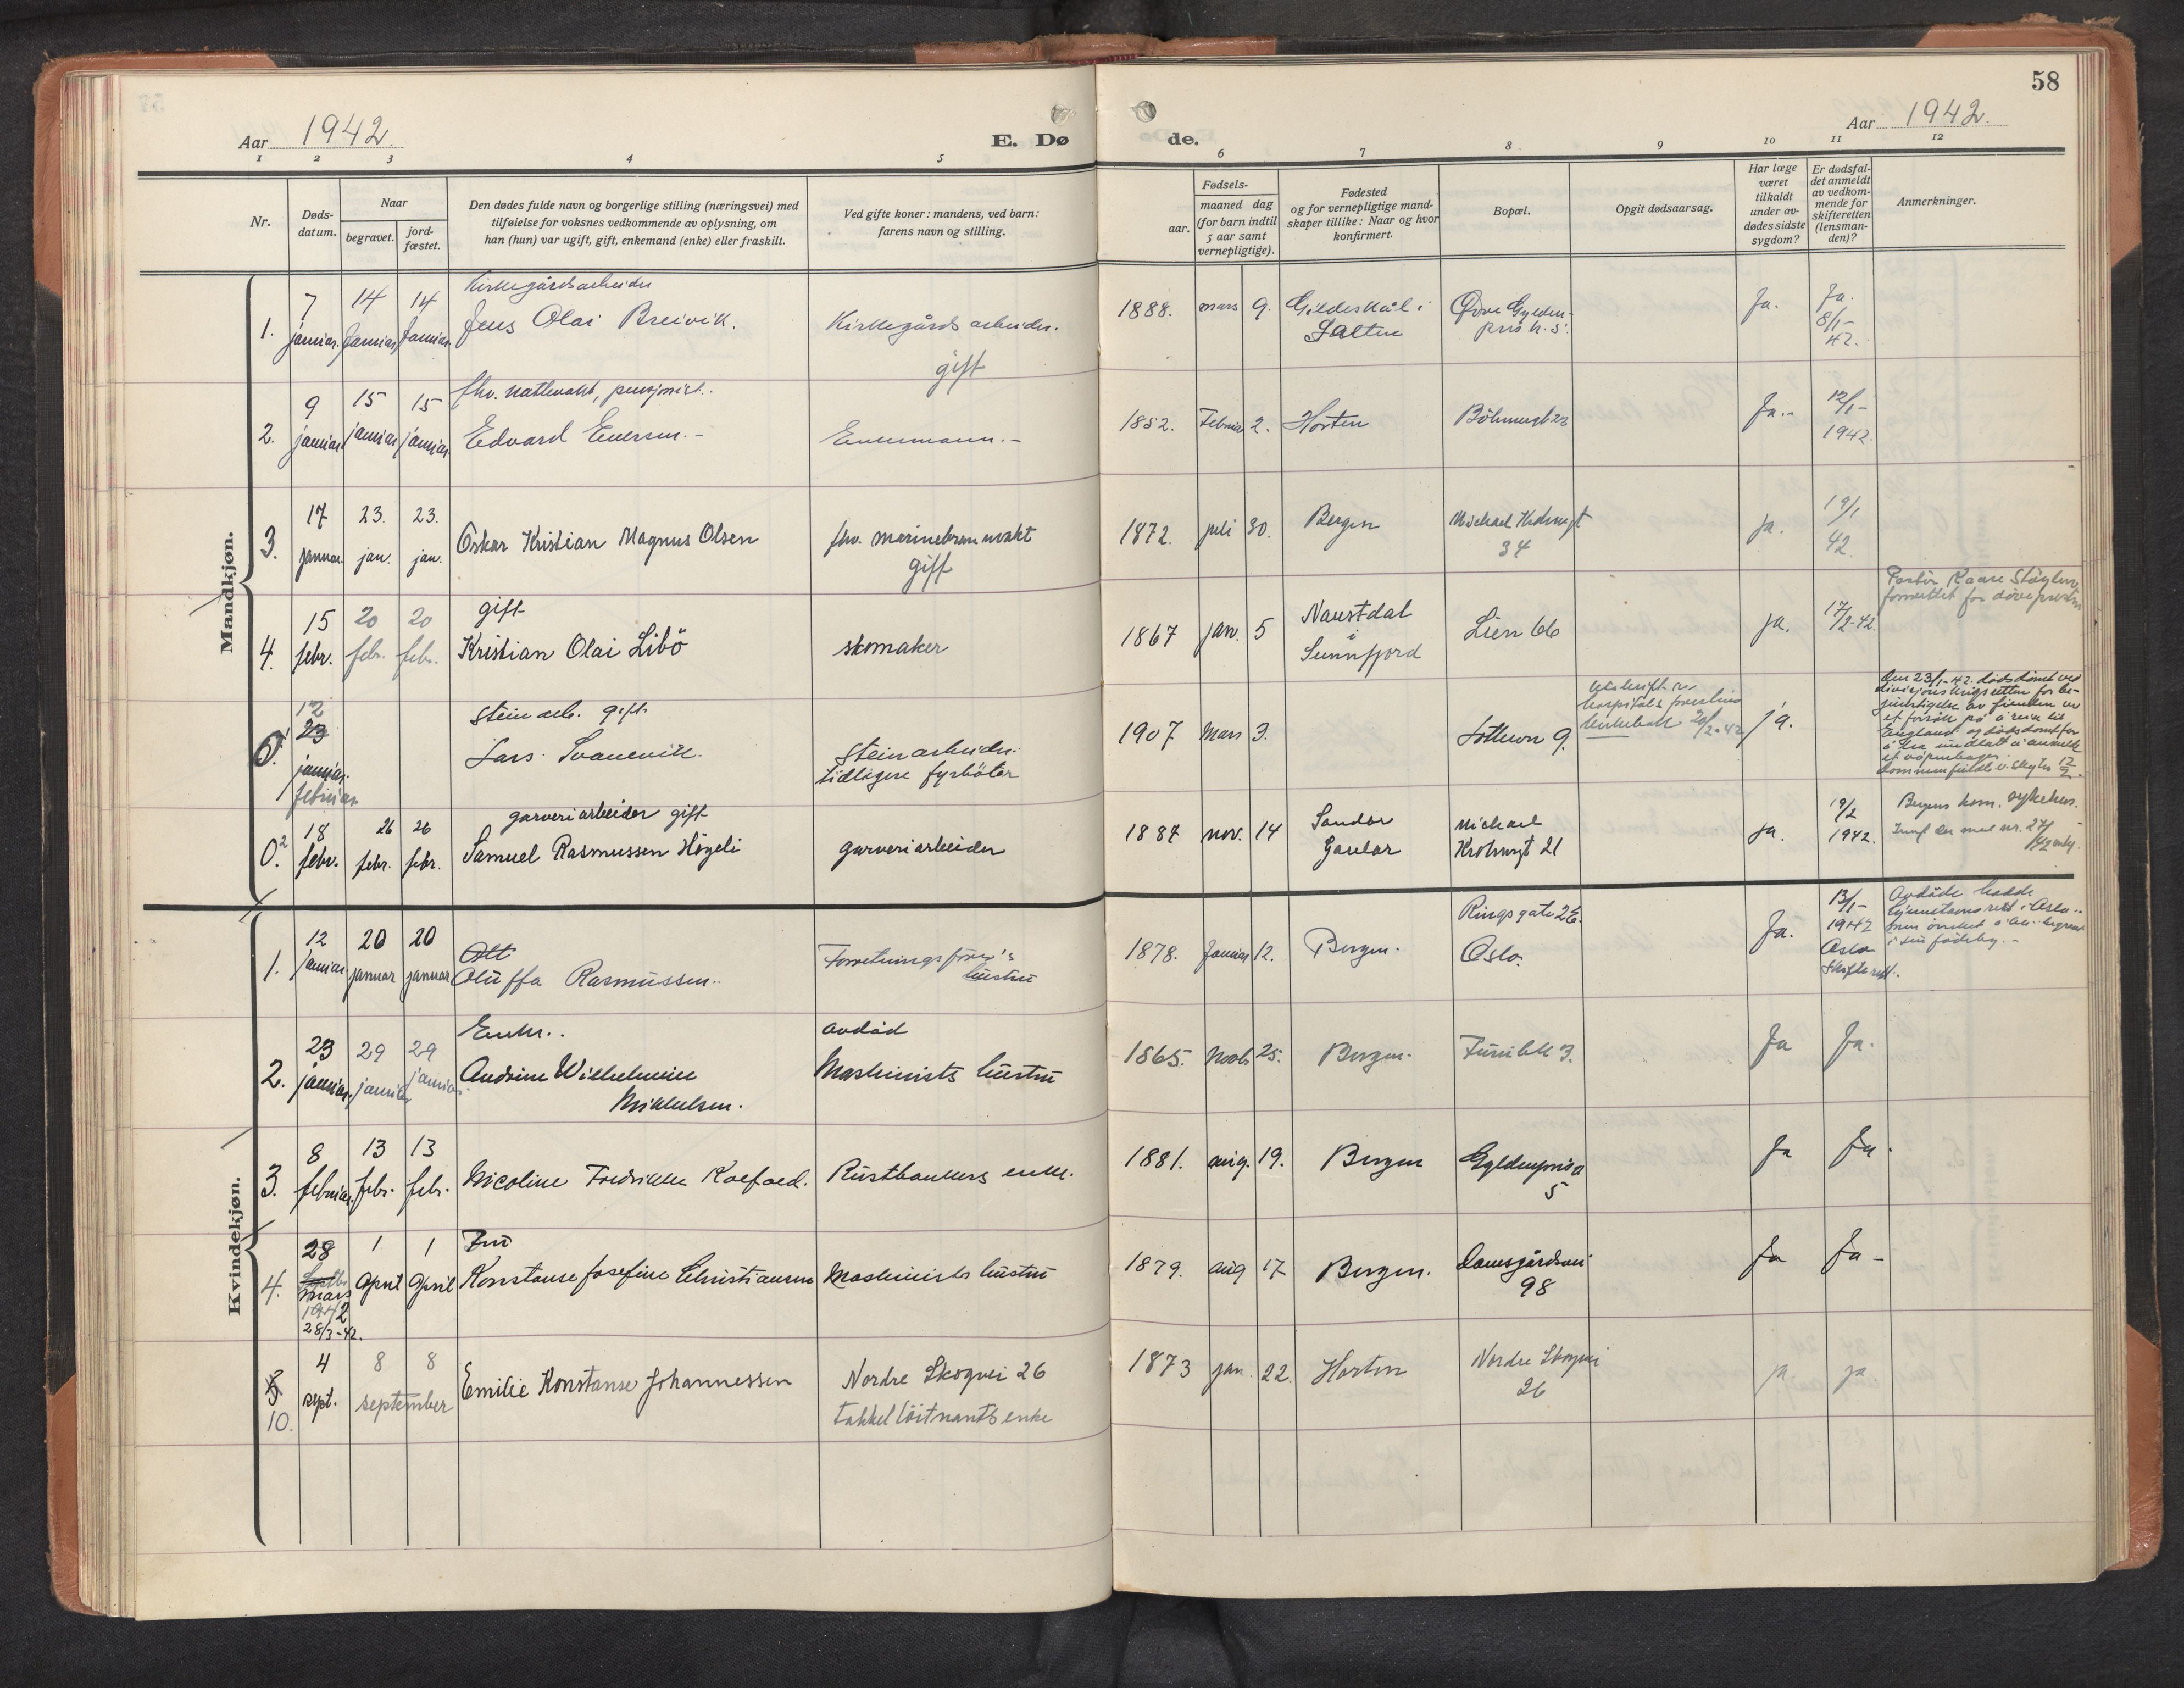 58
Aar 1942.
E. Dø
de.
Aar 1942.
1 2 3 4 5 6 7 8 9 10 11 12
Nr.
Døds-
datum.
Naar
begravet.
jord-
fæstet.
Den dødes fulde navn og borgerlige stilling (næringsvei) med
tilføielse for voksnes vedkommende av oplysning, om
han (hun) var ugift, gift, enkemand (enke) eller fraskilt.
Ved gifte koner: mandens, ved barn:
farens navn og stilling.
Fødsels-
aar.
maaned dag
(for barn indtil
5 aar samt
vernepligtige).
Fødested
og for vernepligtige mand-
skaper tillike: Naar og hvor
konfirmert.
Bopæl.
Opgit dødsaarsag.
Har læge
været
tilkaldt
under av-
dødes sidste
sygdom?
Er dødsfal-
det anmeldt
av vedkom-
mende for
skifteretten
(lensman-
den)?
Anmerkninger.
Mandkjøn.
1.
7 januar.
14 Januar
14 Januar
Kirkegårdsarbeider
Jens Olai Breivik.
Kirkegårds arbeider.
gift
1888. mars 9.
Gildeskål i
Salten
Øvre Gylden-
pris n. 5.
Ja.
Ja.
8/1-
42.
2.
9 januar
15 januar
15 januar
fhv. nattevakt, pensjonist.
Edvard Evensen.-
Enkemann.-
1852. Februar 2.
Horten
Böhmergt 23
Ja.-
12/1-
1942.
3.
17 januar.
23. jan.
23. jan.
Oskar Kristian Magnus Olsen
fhv. marinebrannvakt
gift
1872. juli 30.
Bergen
Michael Krohnsgt
34
ja.
19/1
42.
4.
15 febr.
20 febr.
20 febr.
gift
Kristian Olai Libö
skomaker
1867 jan. 5
Naustdal
i
Sunnfjord
Lien 66
ja.
17/2-42.
0.1
12
23
januar.
februar
stein arb. gift
Lars Svanevik.
Steinarbeider.
tidligere fyrböter
1907 Mars 3.
9.
20/2-42
ja.
Den 23/1-42. dödsdömt ved
et forsök på å reise til
England og dödsdömt for
0.2
18 febr.
26 febr.
26 febr.
garveriarbeider gift
Samuel Rasmussen Högeli
garveriarbeider
1887 nov. 14
Sandar
Gaular
Michael
Krohnsgt 21
ja.
19/2
1942.
Bergens kom. sykehus.
Kvindekjøn.
1.
12 januar
20 januar
20 januar
Oluffa Rasmussen..
Forretningsförer's
hustru
1878. Januar 12.
Bergen.
Ringsgate 2E.
Oslo.
Ja.
13/1-
1942
Oslo
skifterett.
Avdöde hadde
hjemstavnsrett i Oslo..
men önsket å bli begravet
i sin födeby.-
2.
23 januar.
29 januar
29 januar
Enke..
Andrine Wilhelmine
Mikkelsen.
avdöd
Maskinists hustru
1865. Novbr 25.
Bergen.
3.
Ja
Ja.
3.
8 februar.
13 febr.
13 febr.
Nicoline Fredrikke Koefoed.
enke.
1881. aug. 19.
Bergen
Gyldenpris a
5
Ja
Ja.
4.
28
mars
1942
28/3-42.
1 April
1 April
Fru
Konstanse Josefine Christiansen
Maskinists hustru
1879. aug 17
Bergen.
Damsgårdsvei
98
Ja
Ja-
10.
4 sept.
8 8
september
Emilie Konstanse Johannessen
Nordre Skogvei 26
takkellöitnants enke
1873 jan. 22.
Horten
Nordre Skogvei
26
ja
ja.